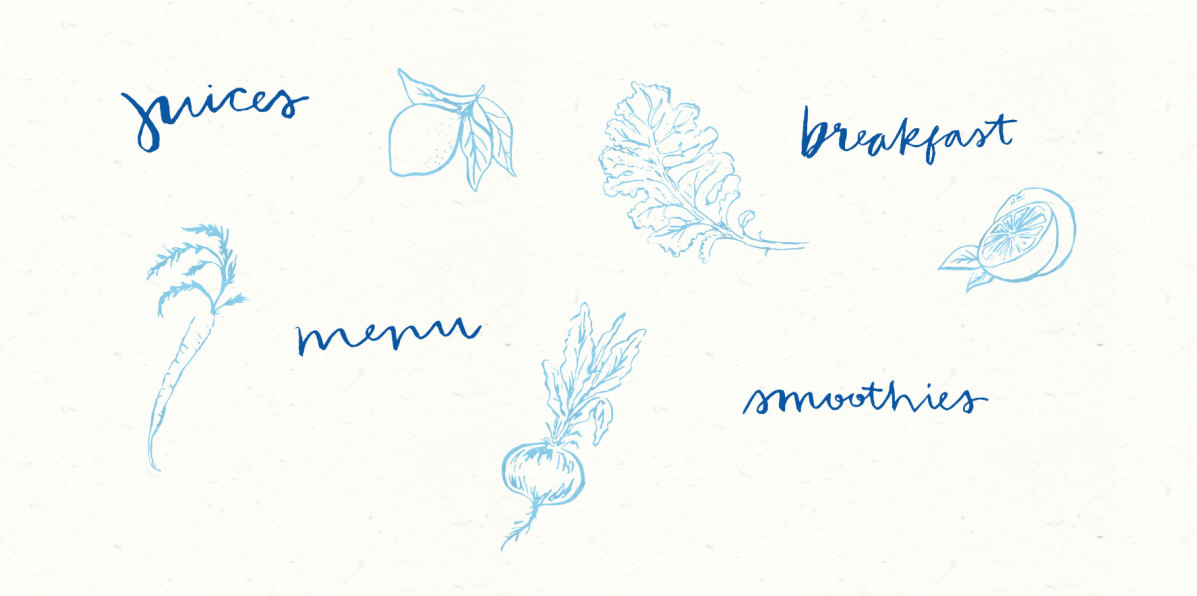 juices
breakfast
menu
smoothies